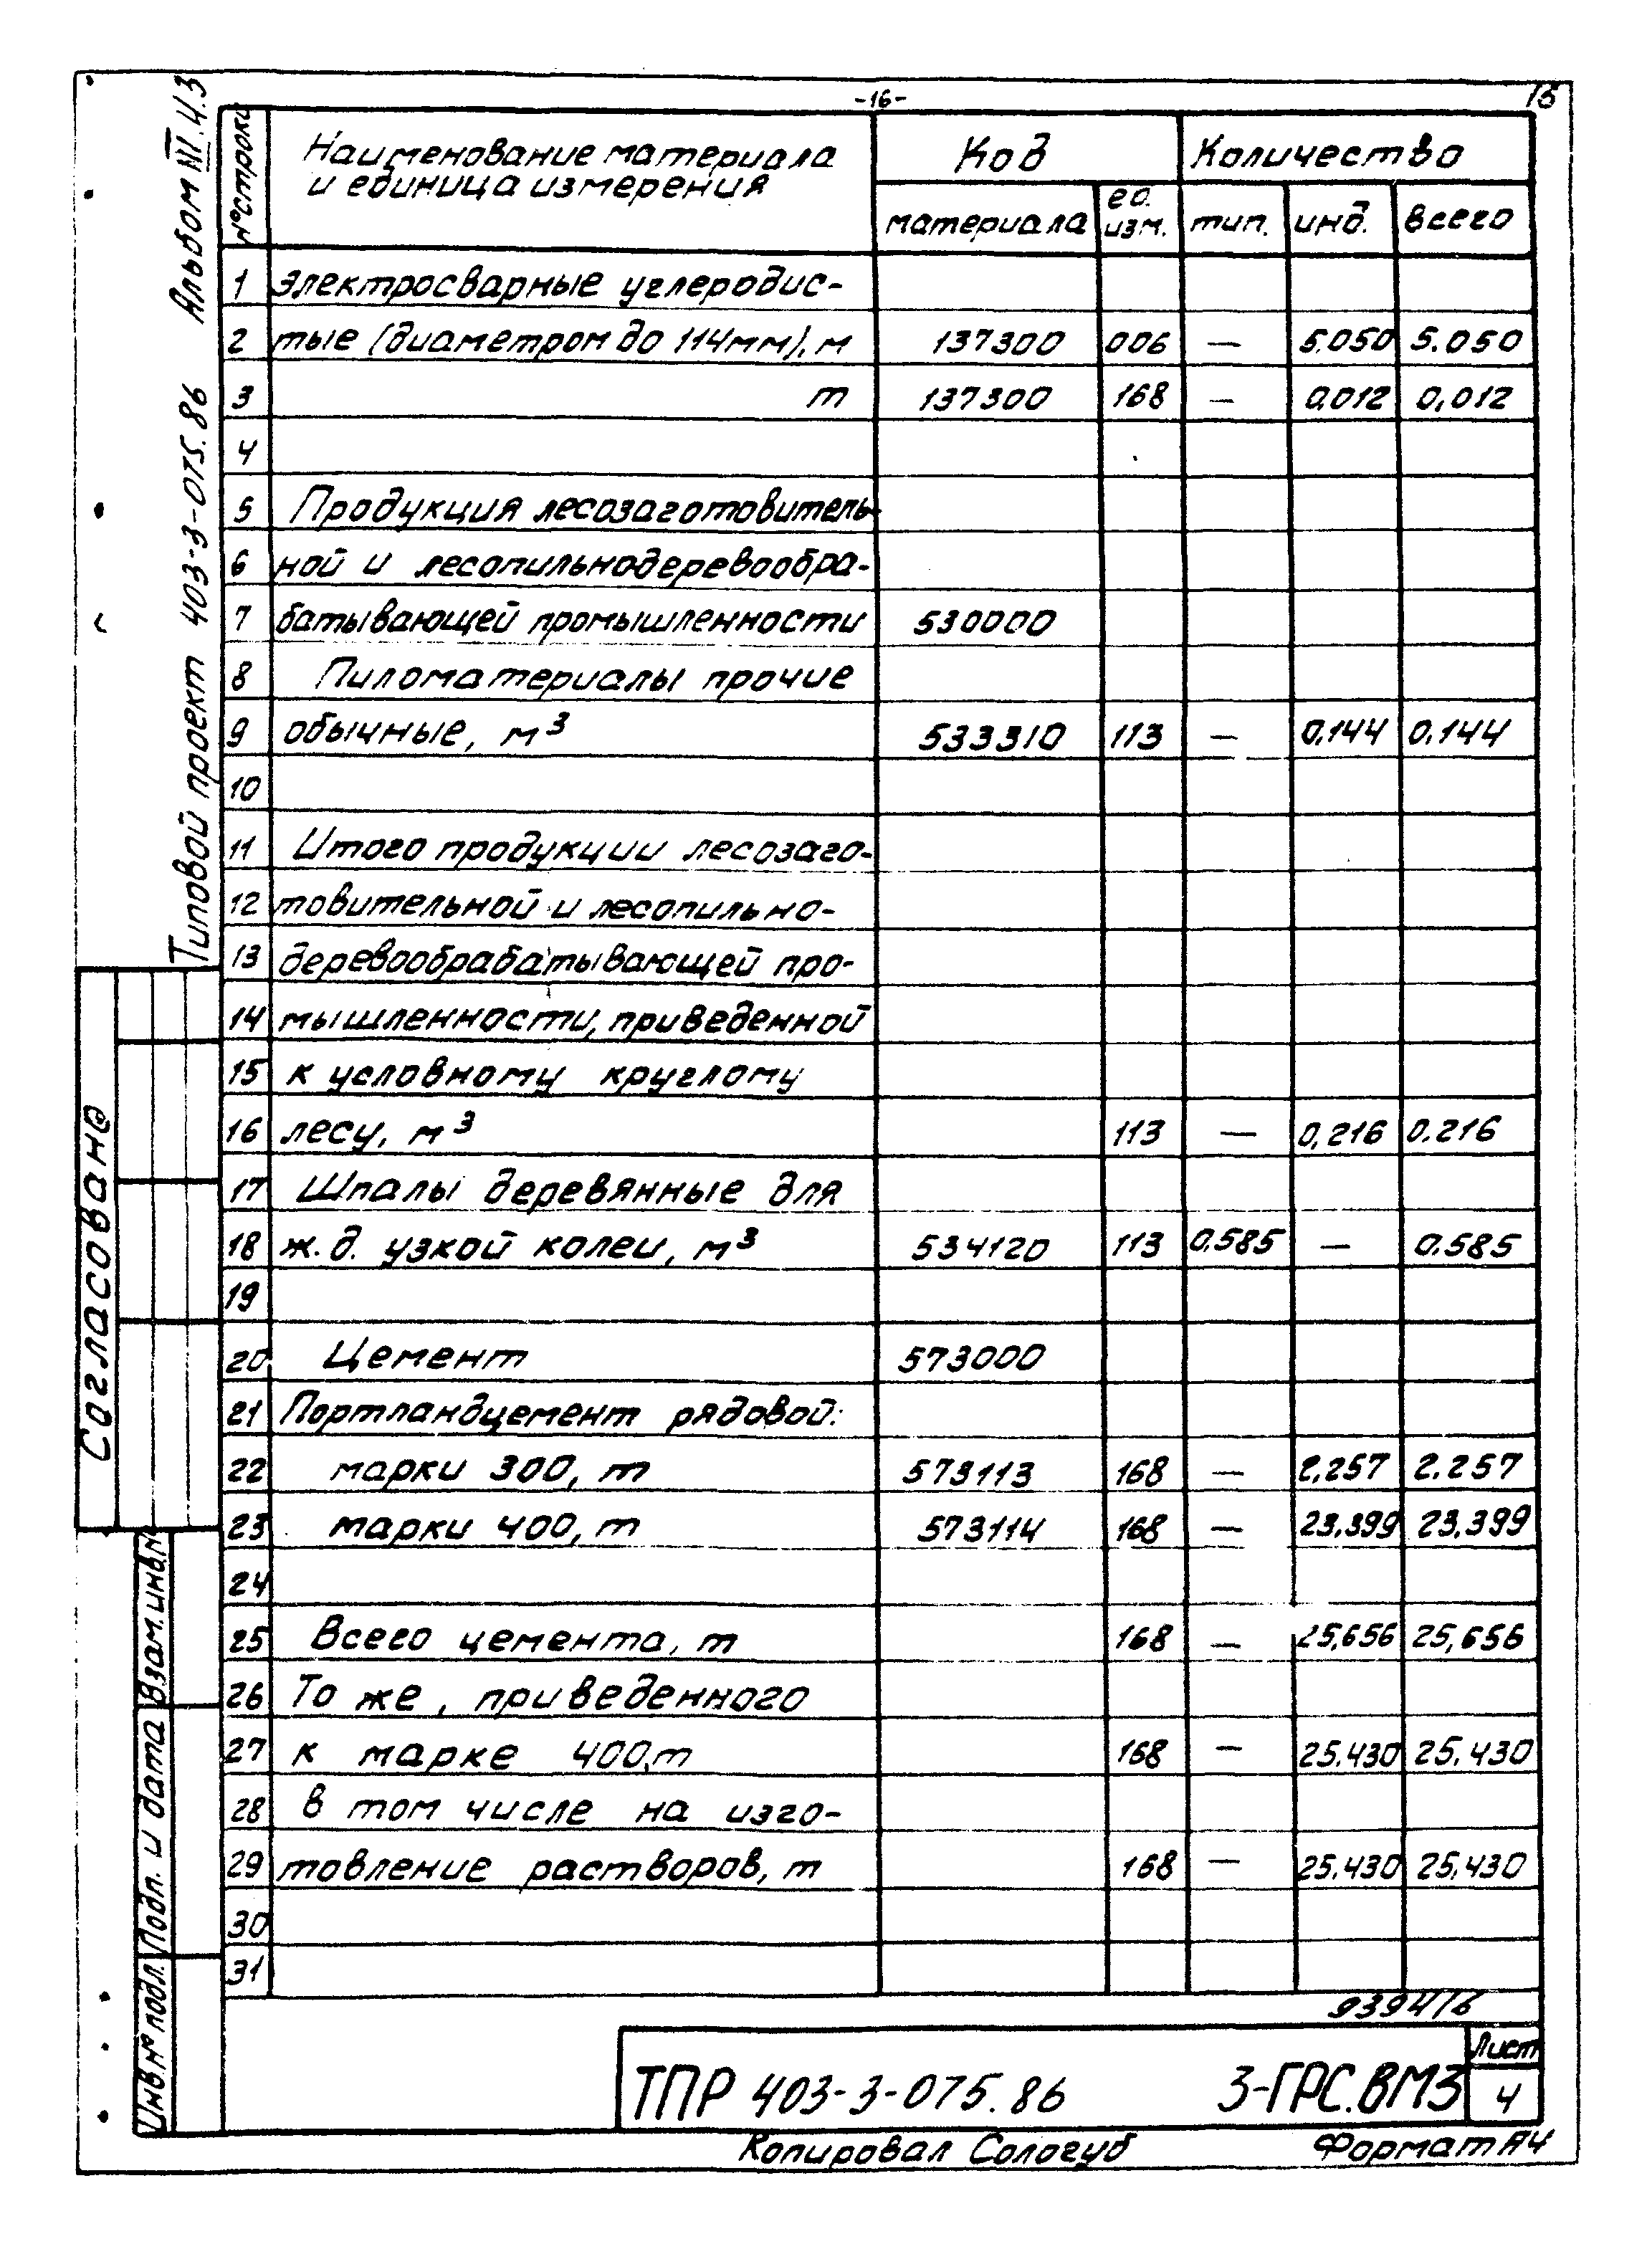 -16-
15
Альбом VI.4.3
Типовой проект 403-3-075.86
№ строки
Наименование материала
и единица измерения
Код
Количество
материала
ед.
изм.
тип.
инд.
всего
1 электросварные углеродис-
2 тые (диаметром до 114мм), м 137300 006 — 5.050 5.050
3 т 137300 168 — 0,012 0,012
4
5 Продукция лесозаготовитель-
6 ной и лесопильнодеревообра-
7 батывающей промышленности 530000
8 Пиломатериалы прочие
9 обычные, м³ 533310 113 — 0,144 0,144
10
11 Итого продукции лесозаго-
12 товительной и лесопильно-
13 деревообрабатывающей про-
14 мышленности, приведенной
15 к условному круглому
16 лесу, м³ 113 — 0,216 0.216
17 Шпалы деревянные для
18 ж.д. узкой колеи, м³ 534120 113 0,585 — 0.585
19
20 Цемент 573000
21 Портландцемент рядовой:
22 марки 300, т 573113 168 — 2,257 2.257
23 марки 400, т 573114 168 — 23,399 23,399
24
25 Всего цемента, т 168 — 25,656 25,656
26 То же, приведенного
27 к марке 400,т 168 — 25.430 25.430
28 в том числе на изго-
29 товление растворов, т 168 — 25.430 25,430
30
31
Согласовано
Взам. инв.№
Подп. и дата
Инв.№ подл.
9394/6
ТПР 403-3-075.86 3-ГРС.ВМ3
Лист
4
Копировал Сологуб Формат А4